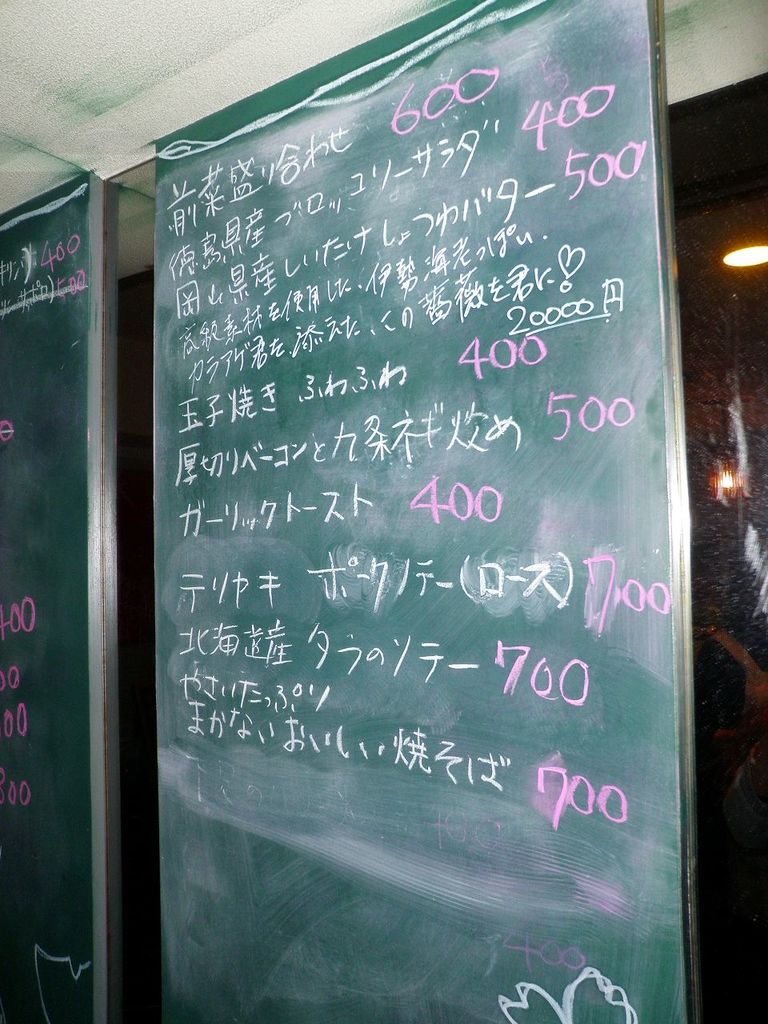 キリン) 400
サッポロ) 500
前菜盛り合わせ 600
徳島県産 ブロッコリーサラダ 400
岡山県産 しいたけ しょうゆバター 500
高級素材を使用した、伊勢海老っぽい、
カラアゲ君を、添えた、この薔薇を君に♡
20000円
玉子焼き ふわふわ 400
厚切りベーコンと九条ネギ炒め 500
ガーリックトースト 400
テリヤキ ポークソテー(ロース) 700
北海道産 タラのソテー 700
やさいたっぷり
まかないおいしい焼そば 700
400